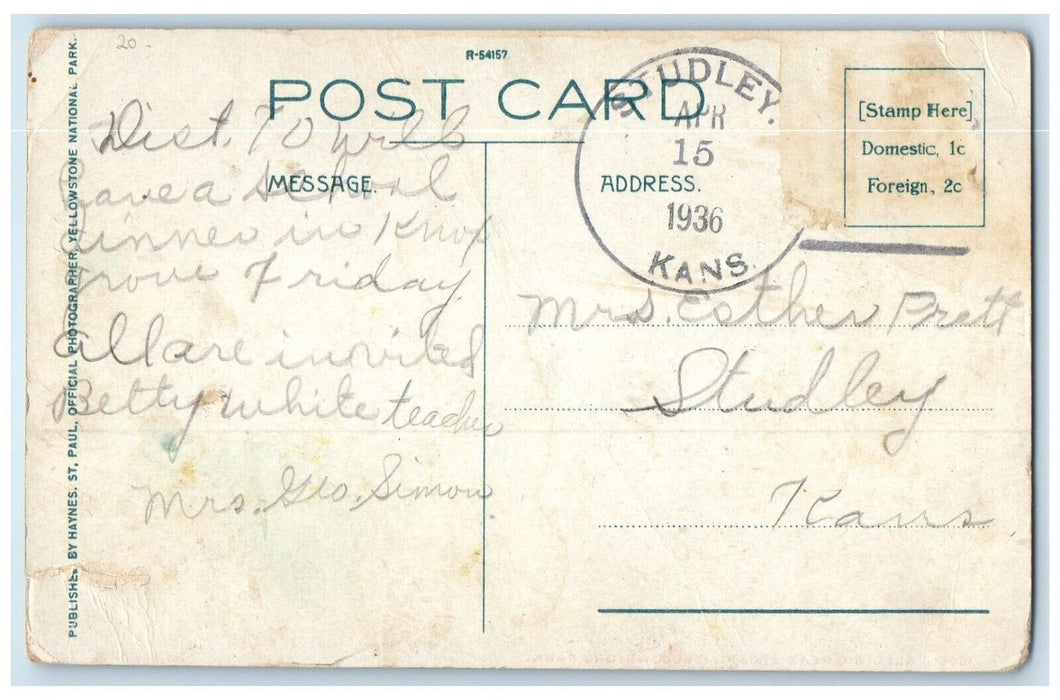 20-
R-54157
POST CARD
STUDLEY.
APR
15
1936
KANS.
[Stamp Here]
Domestic, 1c
Foreign, 2c
MESSAGE.
ADDRESS.
Dist. 70 will
have a school
dinner in Knop
grove Friday
All are invited
Betty White teacher
Mrs. Geo. Simon
Mrs. Esther Pratt
Studley
Kans
PUBLISHED BY HAYNES, ST. PAUL, OFFICIAL PHOTOGRAPHER, YELLOWSTONE NATIONAL PARK.